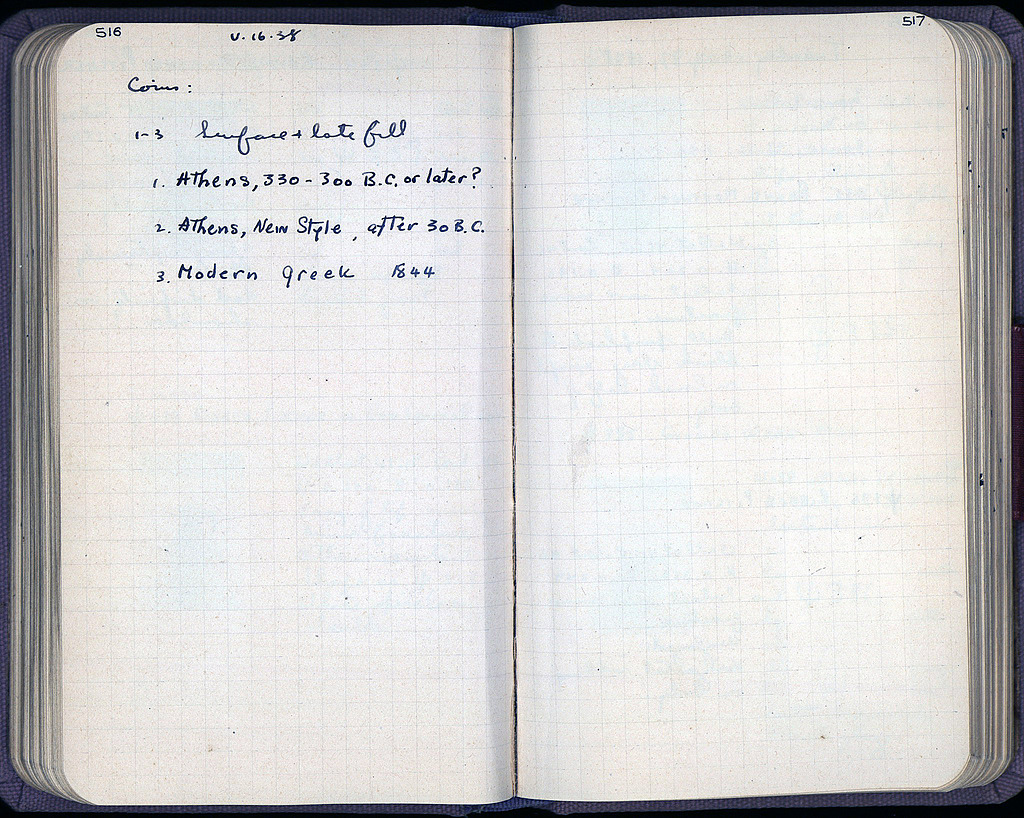 516
V·16·38
Coins:
1-3 Surface + late fill
1. Athens, 330-300 B.C. or later?
2. Athens, New Style, after 30 B.C.
3. Modern Greek 1844
517